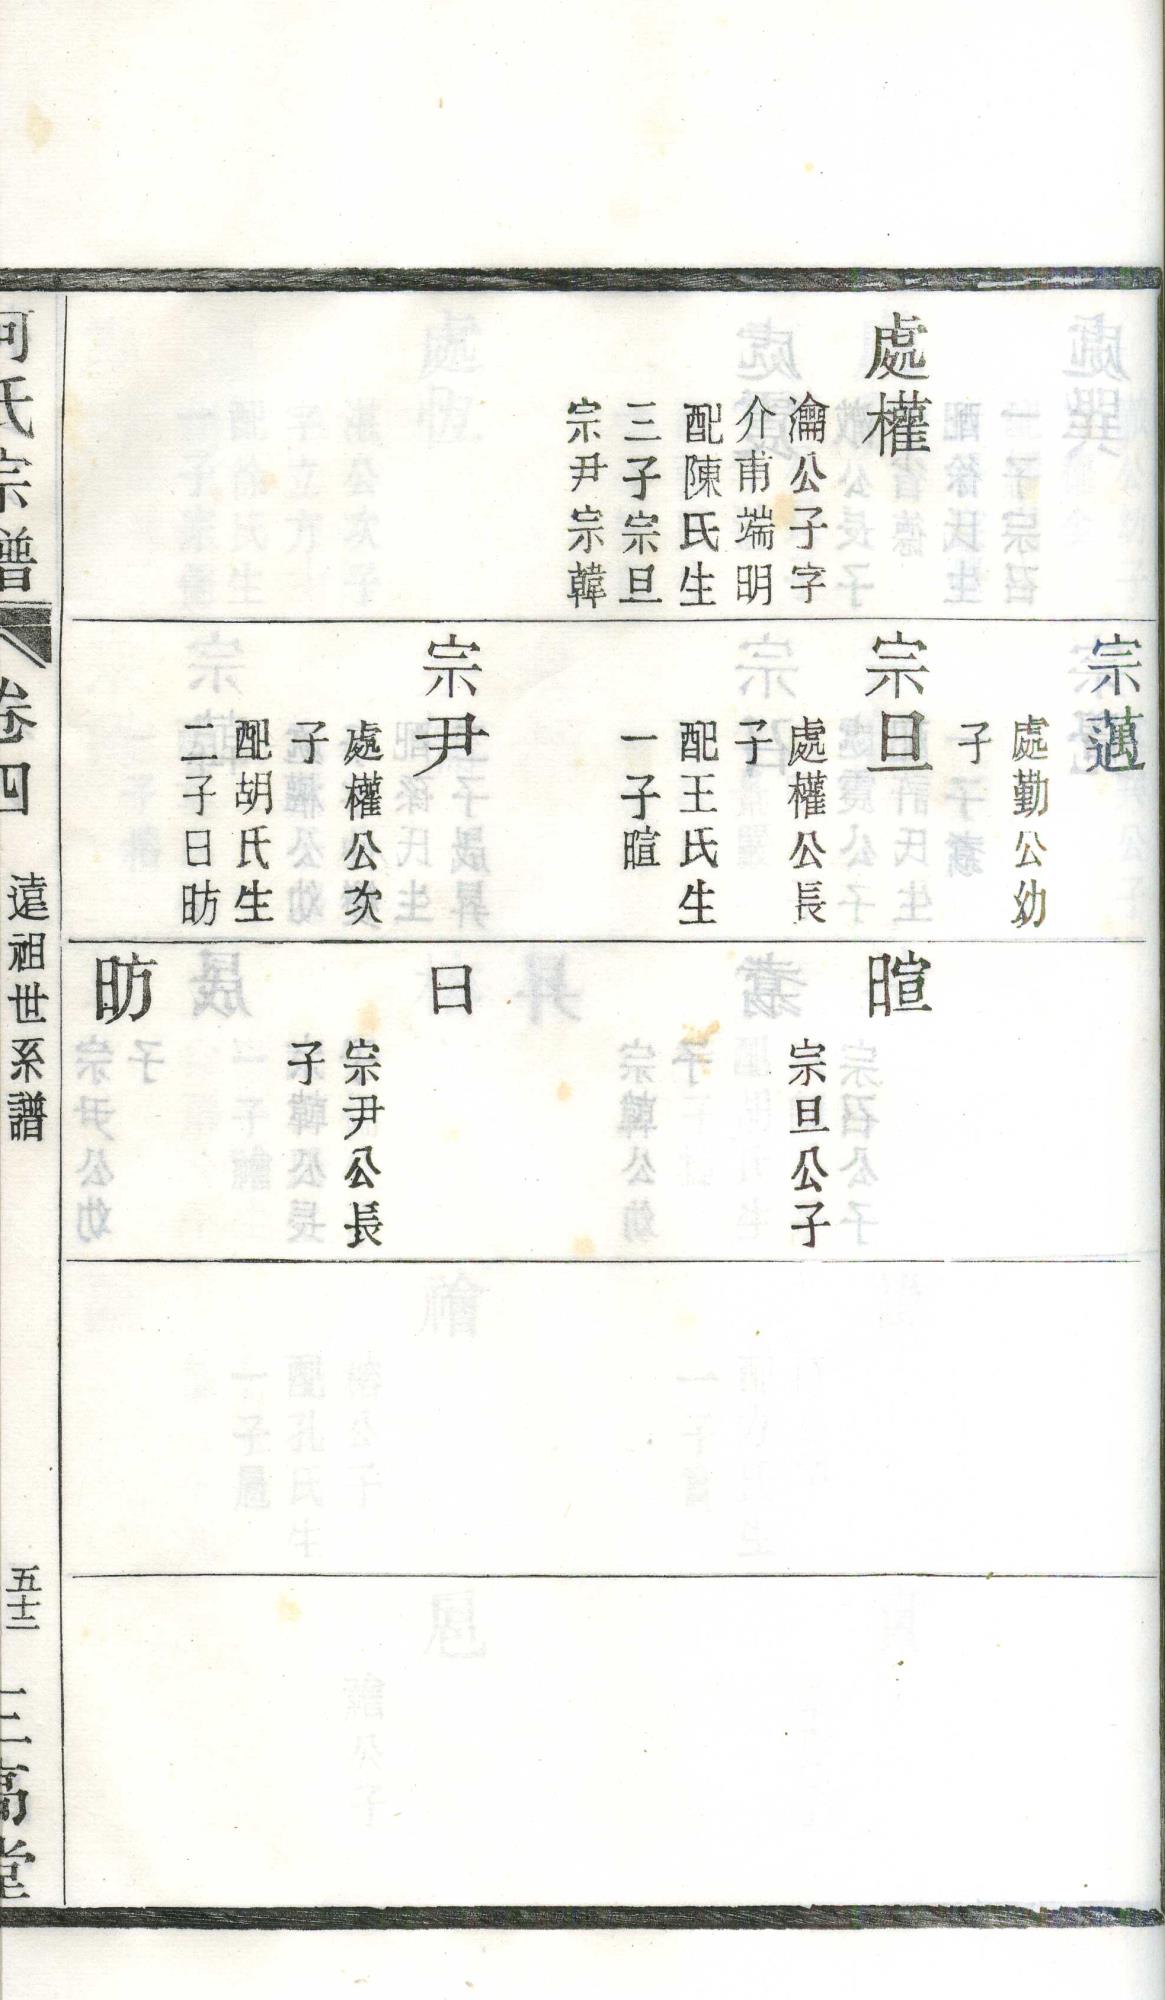 處權
瀹公子字
介甫端明
配陳氏生
三子宗旦
宗尹宗韓
宗邁
處勤公幼
子
宗旦
處權公長
子
配王氏生
一子暄
宗尹
處權公次
子
配胡氏生
二子日昉
暄
宗旦公子
日
宗尹公長
子
昉
何氏宗譜
卷四
遠祖世系譜
五十二
三高堂